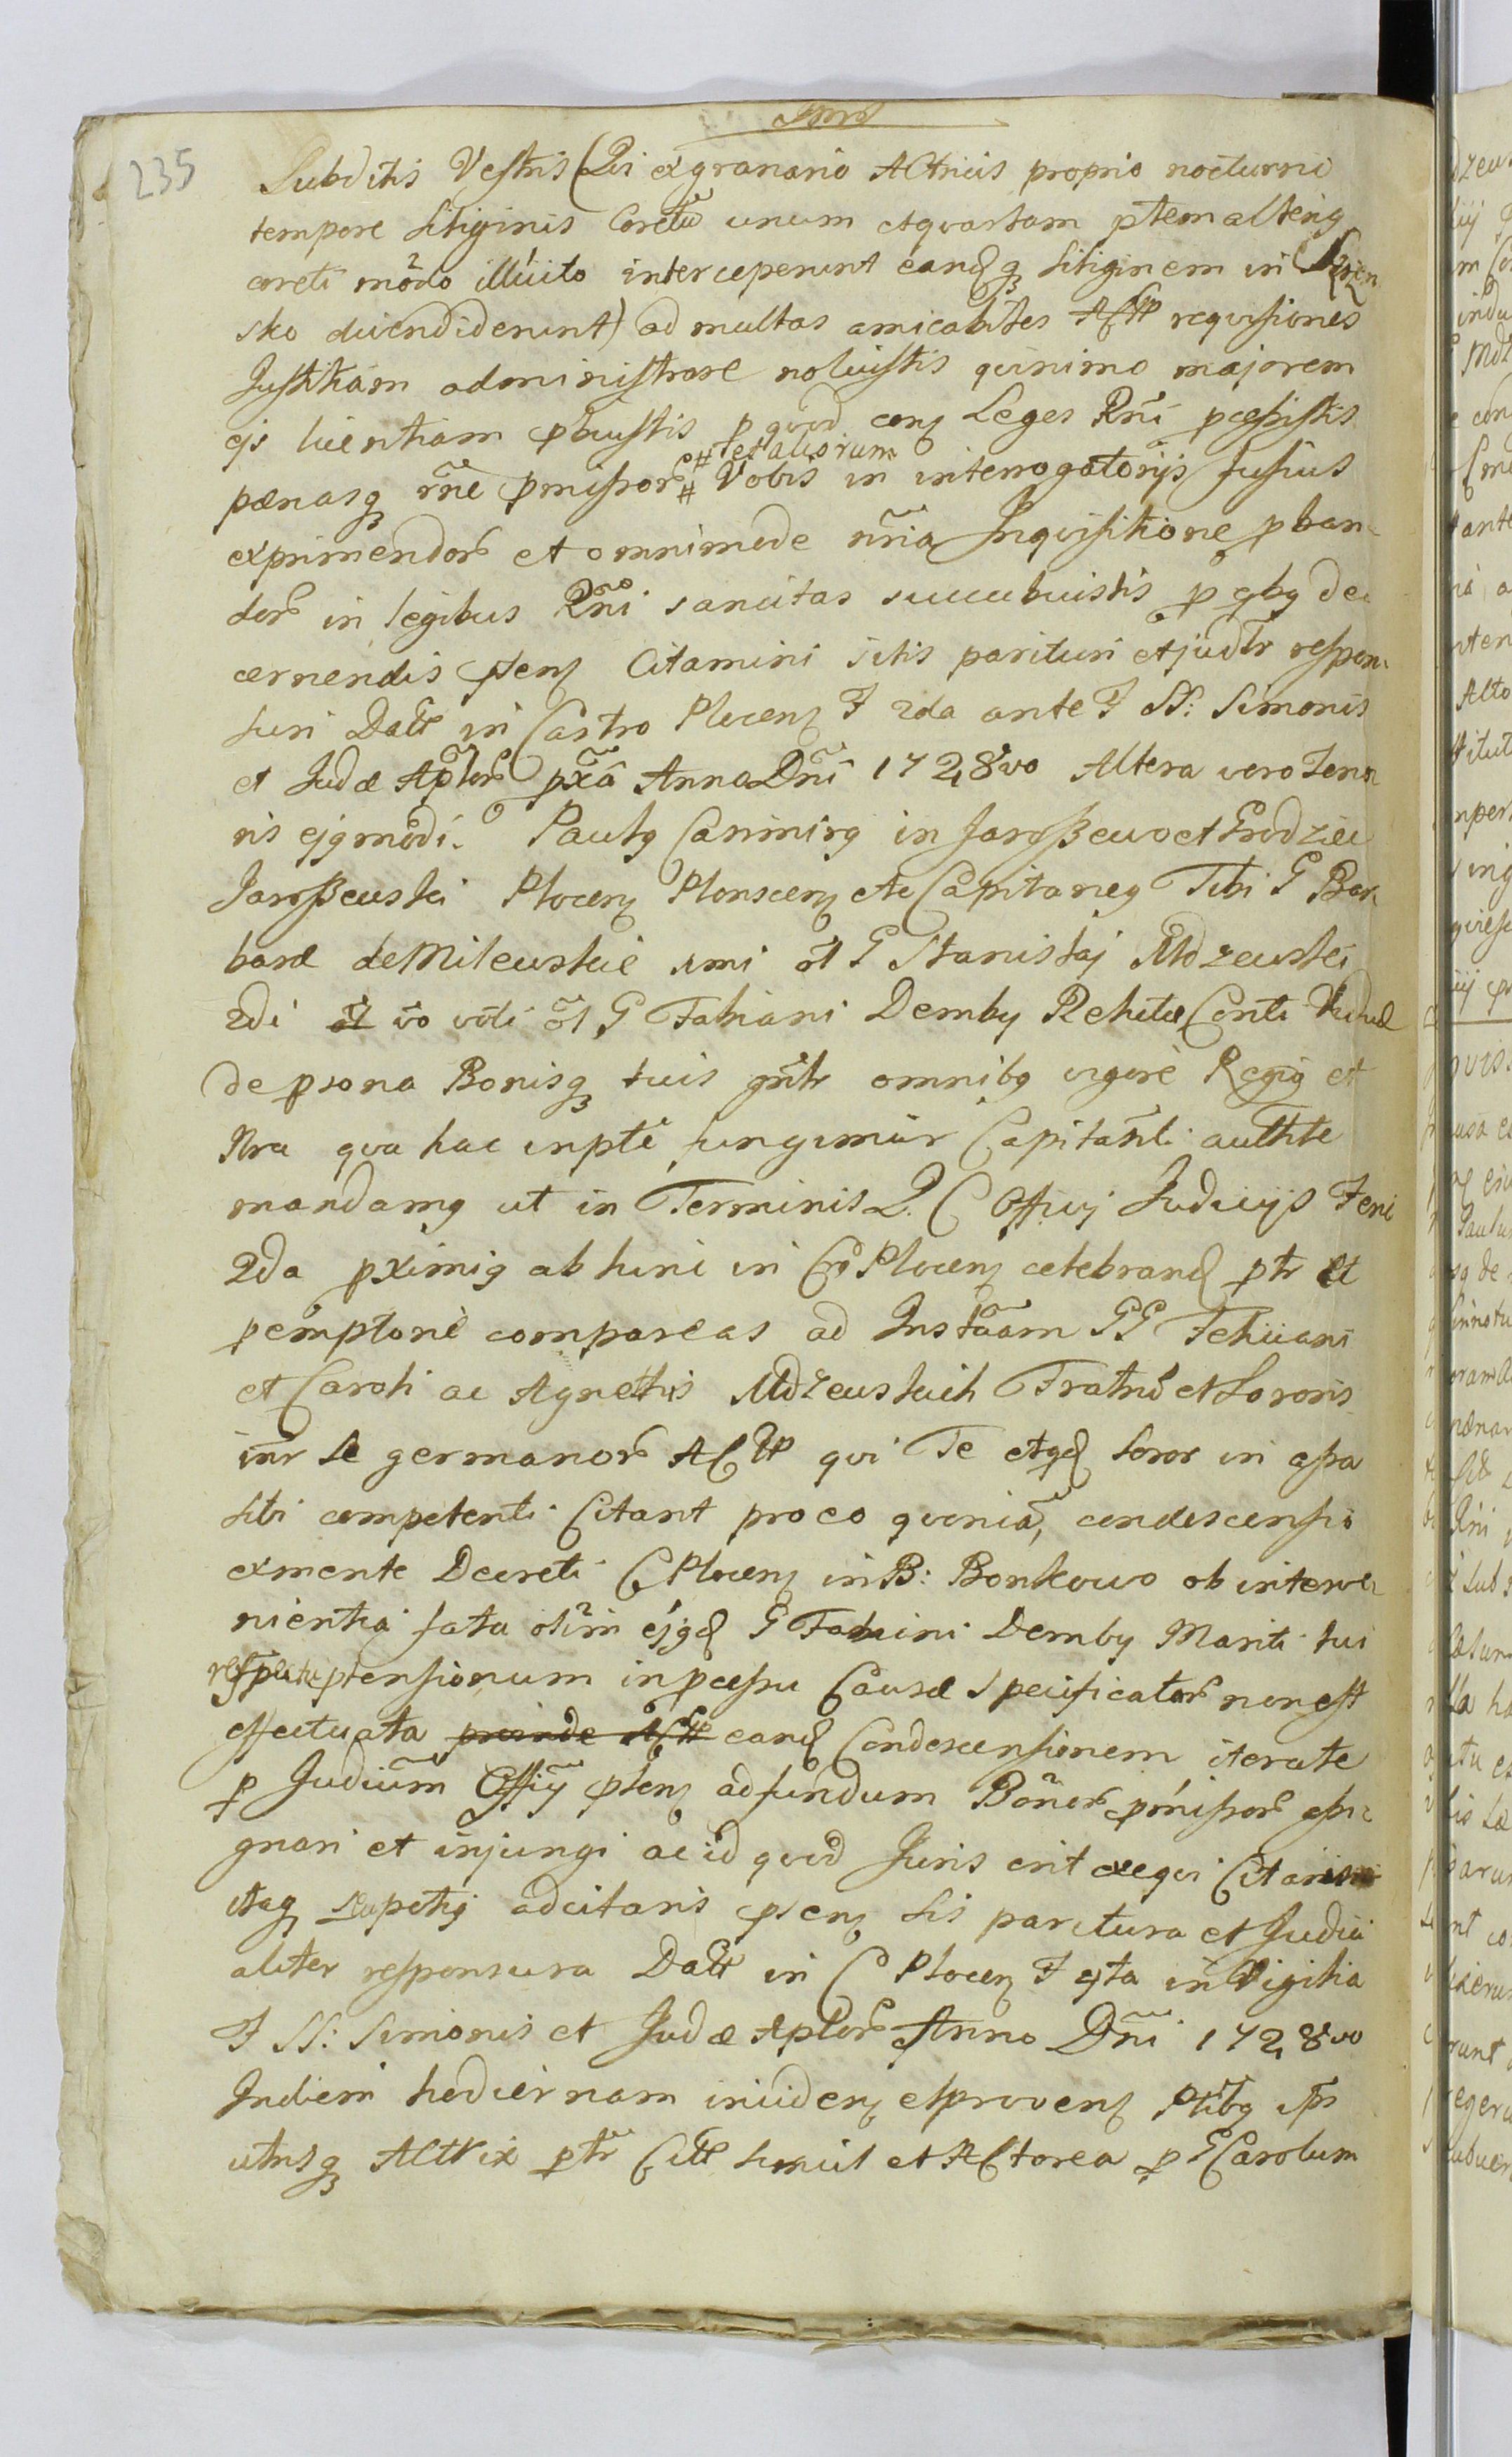 235
Subditis Vestris (Qui ex granario Actricis proprio nocturno
tempore siliginis Coretũ unum et quartam ptem alterig
coreti mõdo illicito interceperunt eandq siliginem in
sko divendiderunt) ad multas amicabiles requisiones
Justitiam administrare noluistis quinimo majorem
ejs licentiam pbuistis p quod conz Leges Rñi pcessistis
pænasq rñe pmissor # et aliorum # Vobis in interrogatorijs fusius
exprimendor et omnimode Inqvisitione pban
dor in legibus Rñi sancitas succubuistis p qbg de
cernendis psenz Citamini sitis parituri et judtr respon
suri Datt in Castro Plocenz F 2da ante F SS: Simonis
et Judæ Aplor pxã Anno Dñi 1728vo Altera vero Teno
ris ejgmodi. Paulg Casimirg in Jaroszewo et Grodziec
Jaroszewski Plocenz Plonscenz etc Capitaneg Tibi G Bar
baræ de Milewskie 1mi õl G Stanislaj Mdzewski
2di õl vo voti õl G Fabiani Demby Relictæ Conti Viduæ
de psona Bonisq tuis gñlr omnibg vigore Regia et
Nra qva hac in pte fungimur Capitañli autthte
mandamg ut in Terminis Q. C Officij Judicijs Feria
2da pximig ab hinc in Cro Plocenz celebrand ptr et
pemptorie compareas ad Instãam GG Feliciani
et Caroli ac Agnethis Mdzewskich Fratrũ et Sororis
intr se germanor qui Te
sibi competenti Citant pro eo qvoniã, condescensio
ex mente Decreti C Plocenz in B: Bonkowo ob interve
nientia fata olim ejgd G Fabiani Demby Mariti tui
respectu ptensionum in pcessu Causæ specificator non est
effectuata proinde eand Condescensionem iterate
p Judicium Officij psenz ad fundum Bonor pmissor assi
gnari et injungi ac id quod Juris erit exeqvi Citaris
itaq adcitaris psenz sis paritura et Judici
aliter responsura Datt in C Plocenz F 4ta in Vigilia
F SS: Simonis et Judæ Aplor Anno Dñi 1728vo
In diem hodiernam incidenz et provenz Ptibg ipis
utrisq Actrix ptr Citt simul et Actorea p G Carolum